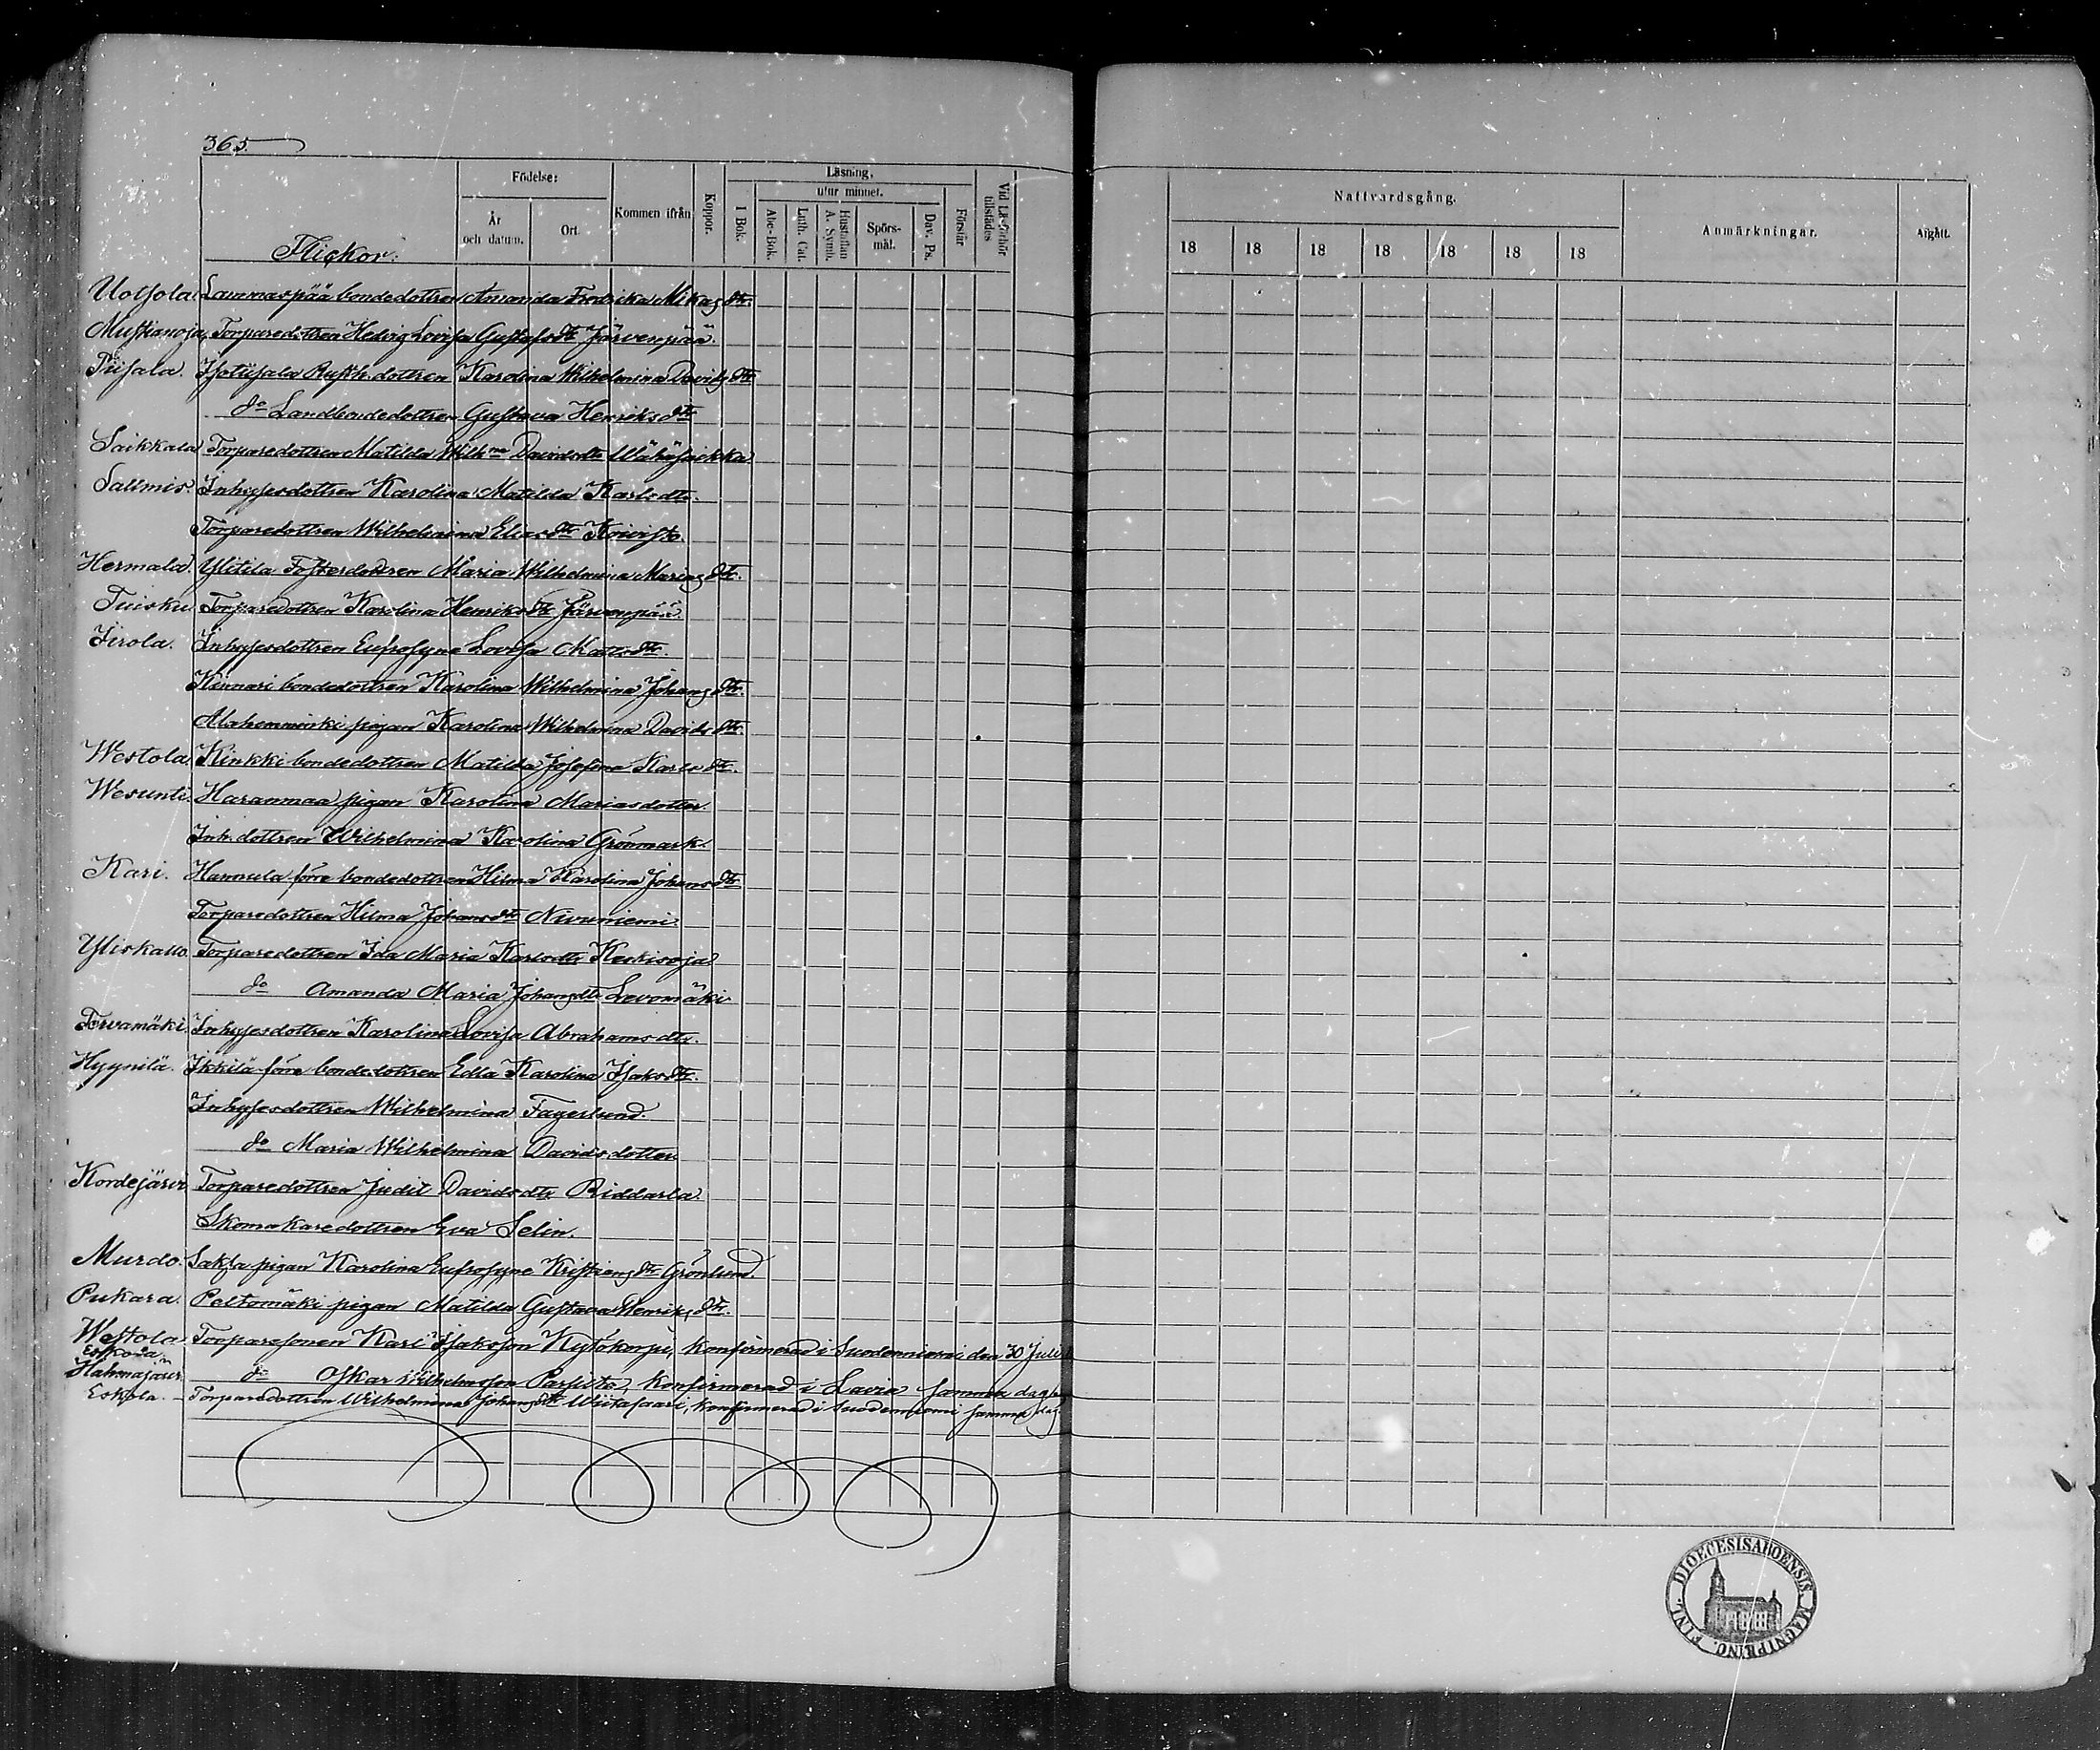 365
Flickor.
Födelse:
År och datum.
Ort
Kommen ifrån
Koppor.
Läsning,
I Bok.
utur minnet.
Abc-Bok.
Luth. Cat.
Hustaflan A. Symb.
Spörs-mål.
Dav. Ps.
Förstår
Vid Läsförhör tillstädes
Nattvardsgång.
18 18 18 18 18 18 18
Anmärkningar.
Afgått.
Uotsola. Lammaspää bondedottren Amanda Fredrika Mikaelsdtr.
Mustianoja, Torparedottren Hedvig Lovisa Gustafsdtr Järvenpää.
Piisala. Isotiisala Rusth.dottren Karolina Wilhelmina Davidsdtr
do Landbondedottren Gustava Henriksdtr
Saikkala Torparedottren Matilda Wilhna Davidsdtr Wähäsaikka
Sallmis. Inhysesdottren Karolina Matilda Karlsdtr.
Torparedottren Wilhelmina Eliasdtr Koivisto.
Hermala. Ylitila Fosterdottren Maria Wilhelmina Mariasdtr.
Tuisku Torparedottren Karolina Henriksdtr Järvenpää.
Jirola. Inhysesdottren Eufrosyne Lovisa Matsdtr.
Kinnari bondedottren Karolina Wilhelmina Johansdtr.
Alahemminki pigan Karolina Wilhelmina Davidsdtr.
Westola. Kinkki bondedottren Matilda Josefina Karlsdtr.
Wesunti. Haranmaa pigan Karolina Mariasdotter.
Inh.dottren Wilhelmina Karolina Grönmark.
Kari. Hannula förre bondedottren Hilma Karolina Johansdtr
Torparedottren Hilma Johansdtr Nivuniemi.
Yliskallo. Torparedottren Ida Maria Karlsdtr Keskisoja
do Amanda Maria Johansdtr Levomäki
Torvamäki. Inhysesdottren Karolina Lovisa Abrahamsdtr.
Hyynilä. Ikkilä förre bondedottren Edla Karolina Isaksdtr.
Inhysesdottren Wilhelmina Fagerlund.
do Maria Wilhelmina Davidsdotter
Kordejärvi Torparedottren Judit Davidsdtr Riddarla
Skomakaredottren Eva Selin.
Murdo. pigan Karolina Eufrosyne Kristiansdtr Grönlund.
Pukara. Peltomäki pigan Matilda Gustava Henriksdtr.
Westola Torparesonen Karl Isaksson Kytökorpi, konfirmerad i Suodenniemi den 30 Juli
Eskola
Hahmajärvi do Oskar Wilhelmsson konfirmerad i Lavia samma dag
Eskola. – Torparedottren Wilhelmina Johansdtr Wiitasaari, konfirmerad i Suodenniemi samma dag
DIOECESIS ABOENSIS. MAGNI PRINC. FINL.